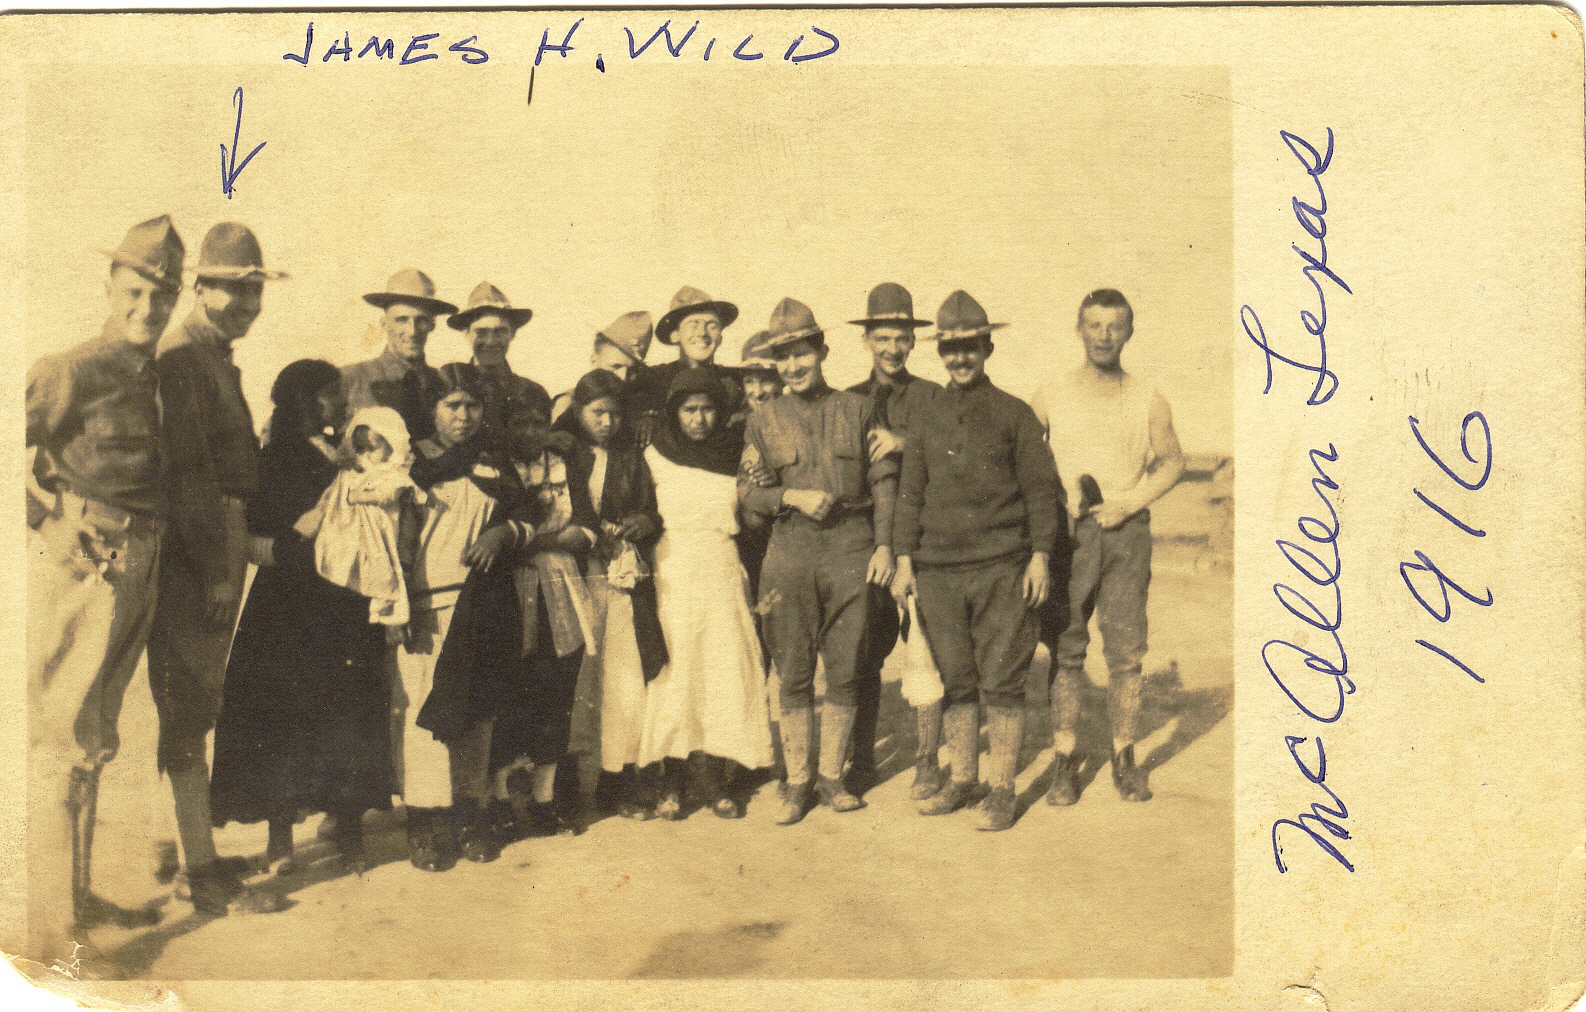 JAMES H. WILD
McAllen Texas
1916